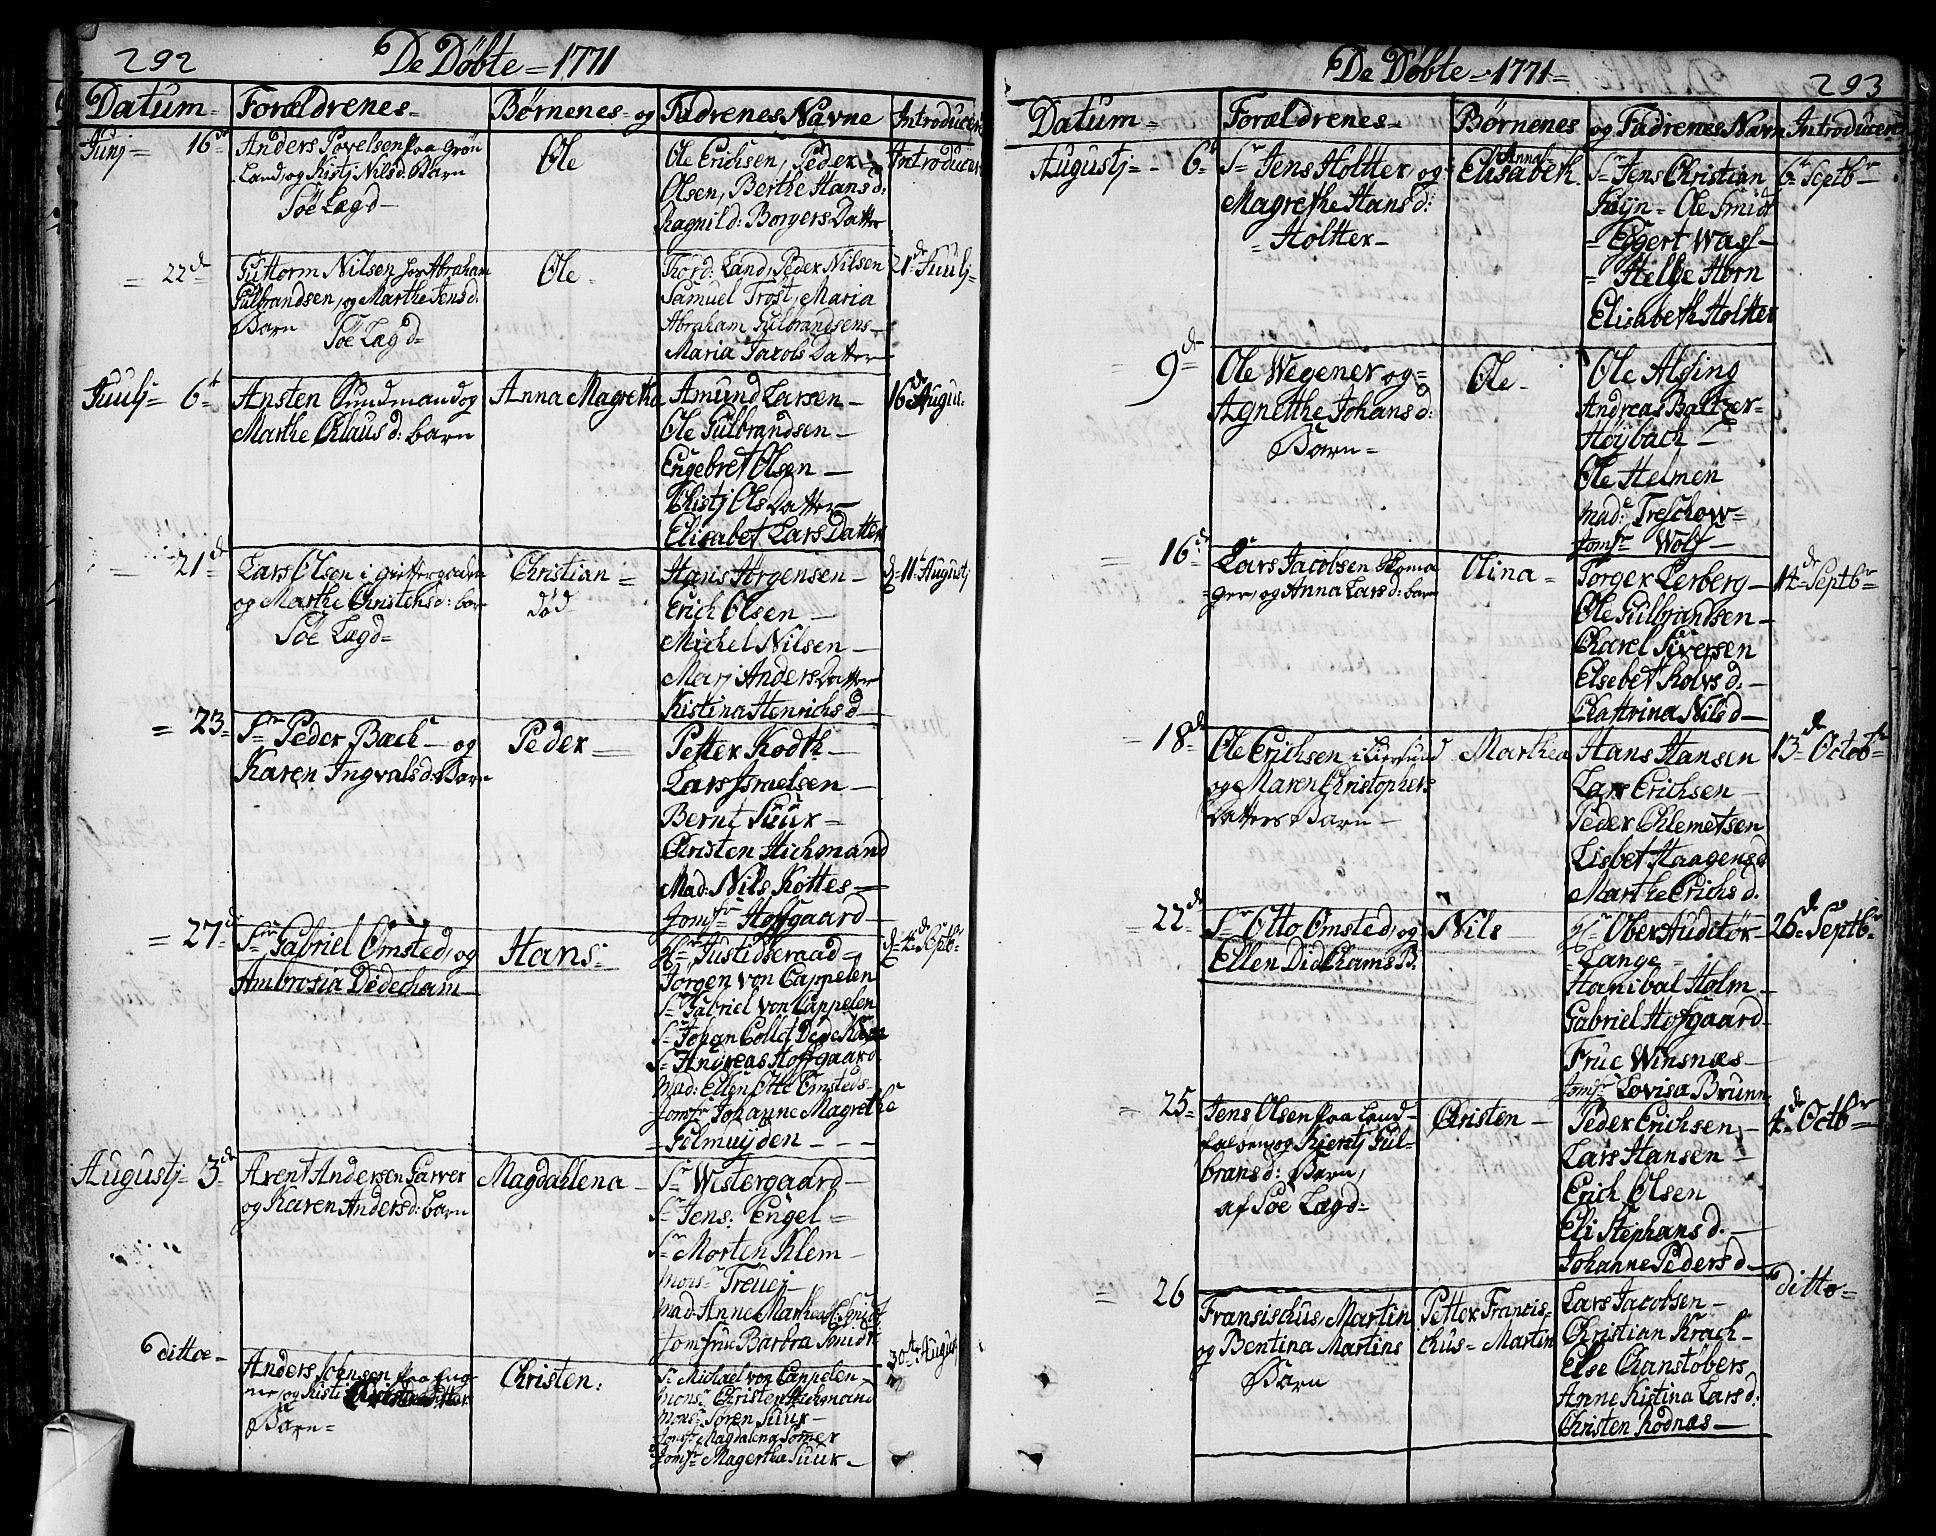 292
De Döbte = 1771
Datum = Forældrenes = Börnenes = og Fadrenes Navne Introducere
Junj = 16de
Anders Povelsen paa Grön
Land, og Kistj Nilsd: Barn
Söe Lægd =
Ole
Ole Erichsen, Peder
Olsen, Berthe Hansd:
Ragnild: Borgers Datter
Introducer
= 22d =
Guttorm Nilsen hos Abraham
Gulbrandsen, og Marthe Jensd:
Barn
Söe Lægd =
Ole =
Tord: Land, Peder Nilsen
Samuel Trost, Maria
Abraham Gulbrandsens
Maria Jacobs Datter
21de Juulj =
Juulj = 6t
Ansten Sundmand og
Marthe Claus d: barn
Anna Magretha
Amund Larsen —
Ole Gulbrandsen —
Engebret Olsen —
Chistj Ols Datter —
Elisabet Lars Datter
16de Augus:
= 21d =
Lars Olsen i
og Marthe Christensd: bar
Söe Lægd =
Christian =
död
Hans Jörgensen —
Erich Olsen —
Michel Nilsen —
Marj Anders Datter
Kistina Henrichs d —
d = 11t Augustj
= 23 =
Sr Peder Bæch — og
Karen Ingvalsd: Barn
Peder —
Petter Kodth —
Lars Israelsen —
Bernt Suur —
Christen Hichmand
Mad: Nils Kottes —
Jomfr Hoffgaard —
= 27d =
Sr Gabriel Omsted, og
Ambrosia Didecham
Hans:
Hr Justidseraad =
Jörgen von Cappelen
Sr Gabriel von Cappelen
Sr Johan Collet
Sr Andreas Hoffgaard
Mad: Ellen Otte Omsteds
Jomfr Johanne Magrethe
= Gelmuijden — — —
d = 4de Septbr
Augustj = 3de
Arent Andersen Garver
og Karen Andersd: barn
Magdahlena —
Sr Westergaard —
Sr Jens: Engel =
Sr Morten Klem —
Monsr Treuej —
Mad: Anne Marthe Smidt
Jomfrue Barbra Smidt
ditto —
Anders Joensen paa Eng
ner, og Kisti
Barn =
Christen:
Sr Michael von Cappelen —
Monsr Christen Hichmand
Monsr Sören Suur —
Jomfr Magdalena Somer
Jomfr Magertha Suur —
30te August
De Döbte = 1771 =
293
Datum = Forældrenes = Börnenes og Fadrenes Navn Introducere
Augustj = 6t
Sr Jens Holtter, og
Magrethe Hansd:
= Holtter —
Anna
Elisabeth
Sr Jens Christian
= Ole Smidt
= Eggert Wass —
= Helge Horn
Elisabeth Holtter
6t Septbr
= 9de =
Ole Wegener og =
Agnethe Johansd:
Barn =
Ole —
Ole Alsing
Andreas Baltzer =
Höybach —
Ole Helmen
Mad: Treschow =
Jomfr Wolf —
= 16de
Lars Jacobsen Skoma
ger, og Anna Larsd: barn
Olina =
Torger Lerberg —
Ole Gulbrandsen —
Charel Siversen
Elsebet Rolvs d: —
Chattrina Nilsd —
14de Septbr
= 18de
Ole Erichsen i
og Maren Christophers
Datters Barn —
Marthea
Hans Hansen
Lars Erichsen —
Peder Chlemetsen
Lisbet Haagensd
Marthe Erichs d.
13de Octobr
= 22de
Sr Otto Omsted, og
Ellen Didchams B.
Nils
Hr Ober Auditör
= Lange =
Hanibal Holm —
Gabriel Hofgaard —
Frue Winsnæs —
Jomfr Lovisa Brunn
26de Septbr
= 25 =
Jens Olsen paa Land
falsen, og Kierstj Gul-
bransd: Barn,
af Söe Lægd =
Christen —
Peder Erichsen —
Lars Hansen —
Erich Olsen
Eli Stephans d. —
Johanne Peders d —
4de Octbr
= 26
Fransischus, Martin
og Bentina Martins
Barn
Petter Francis-
chus = Martin
Lars Jacobsen —
Christian Krach —
Else Chanstöbers
Anne Kistina Larsd:
Christen Rodnæs —
ditto =